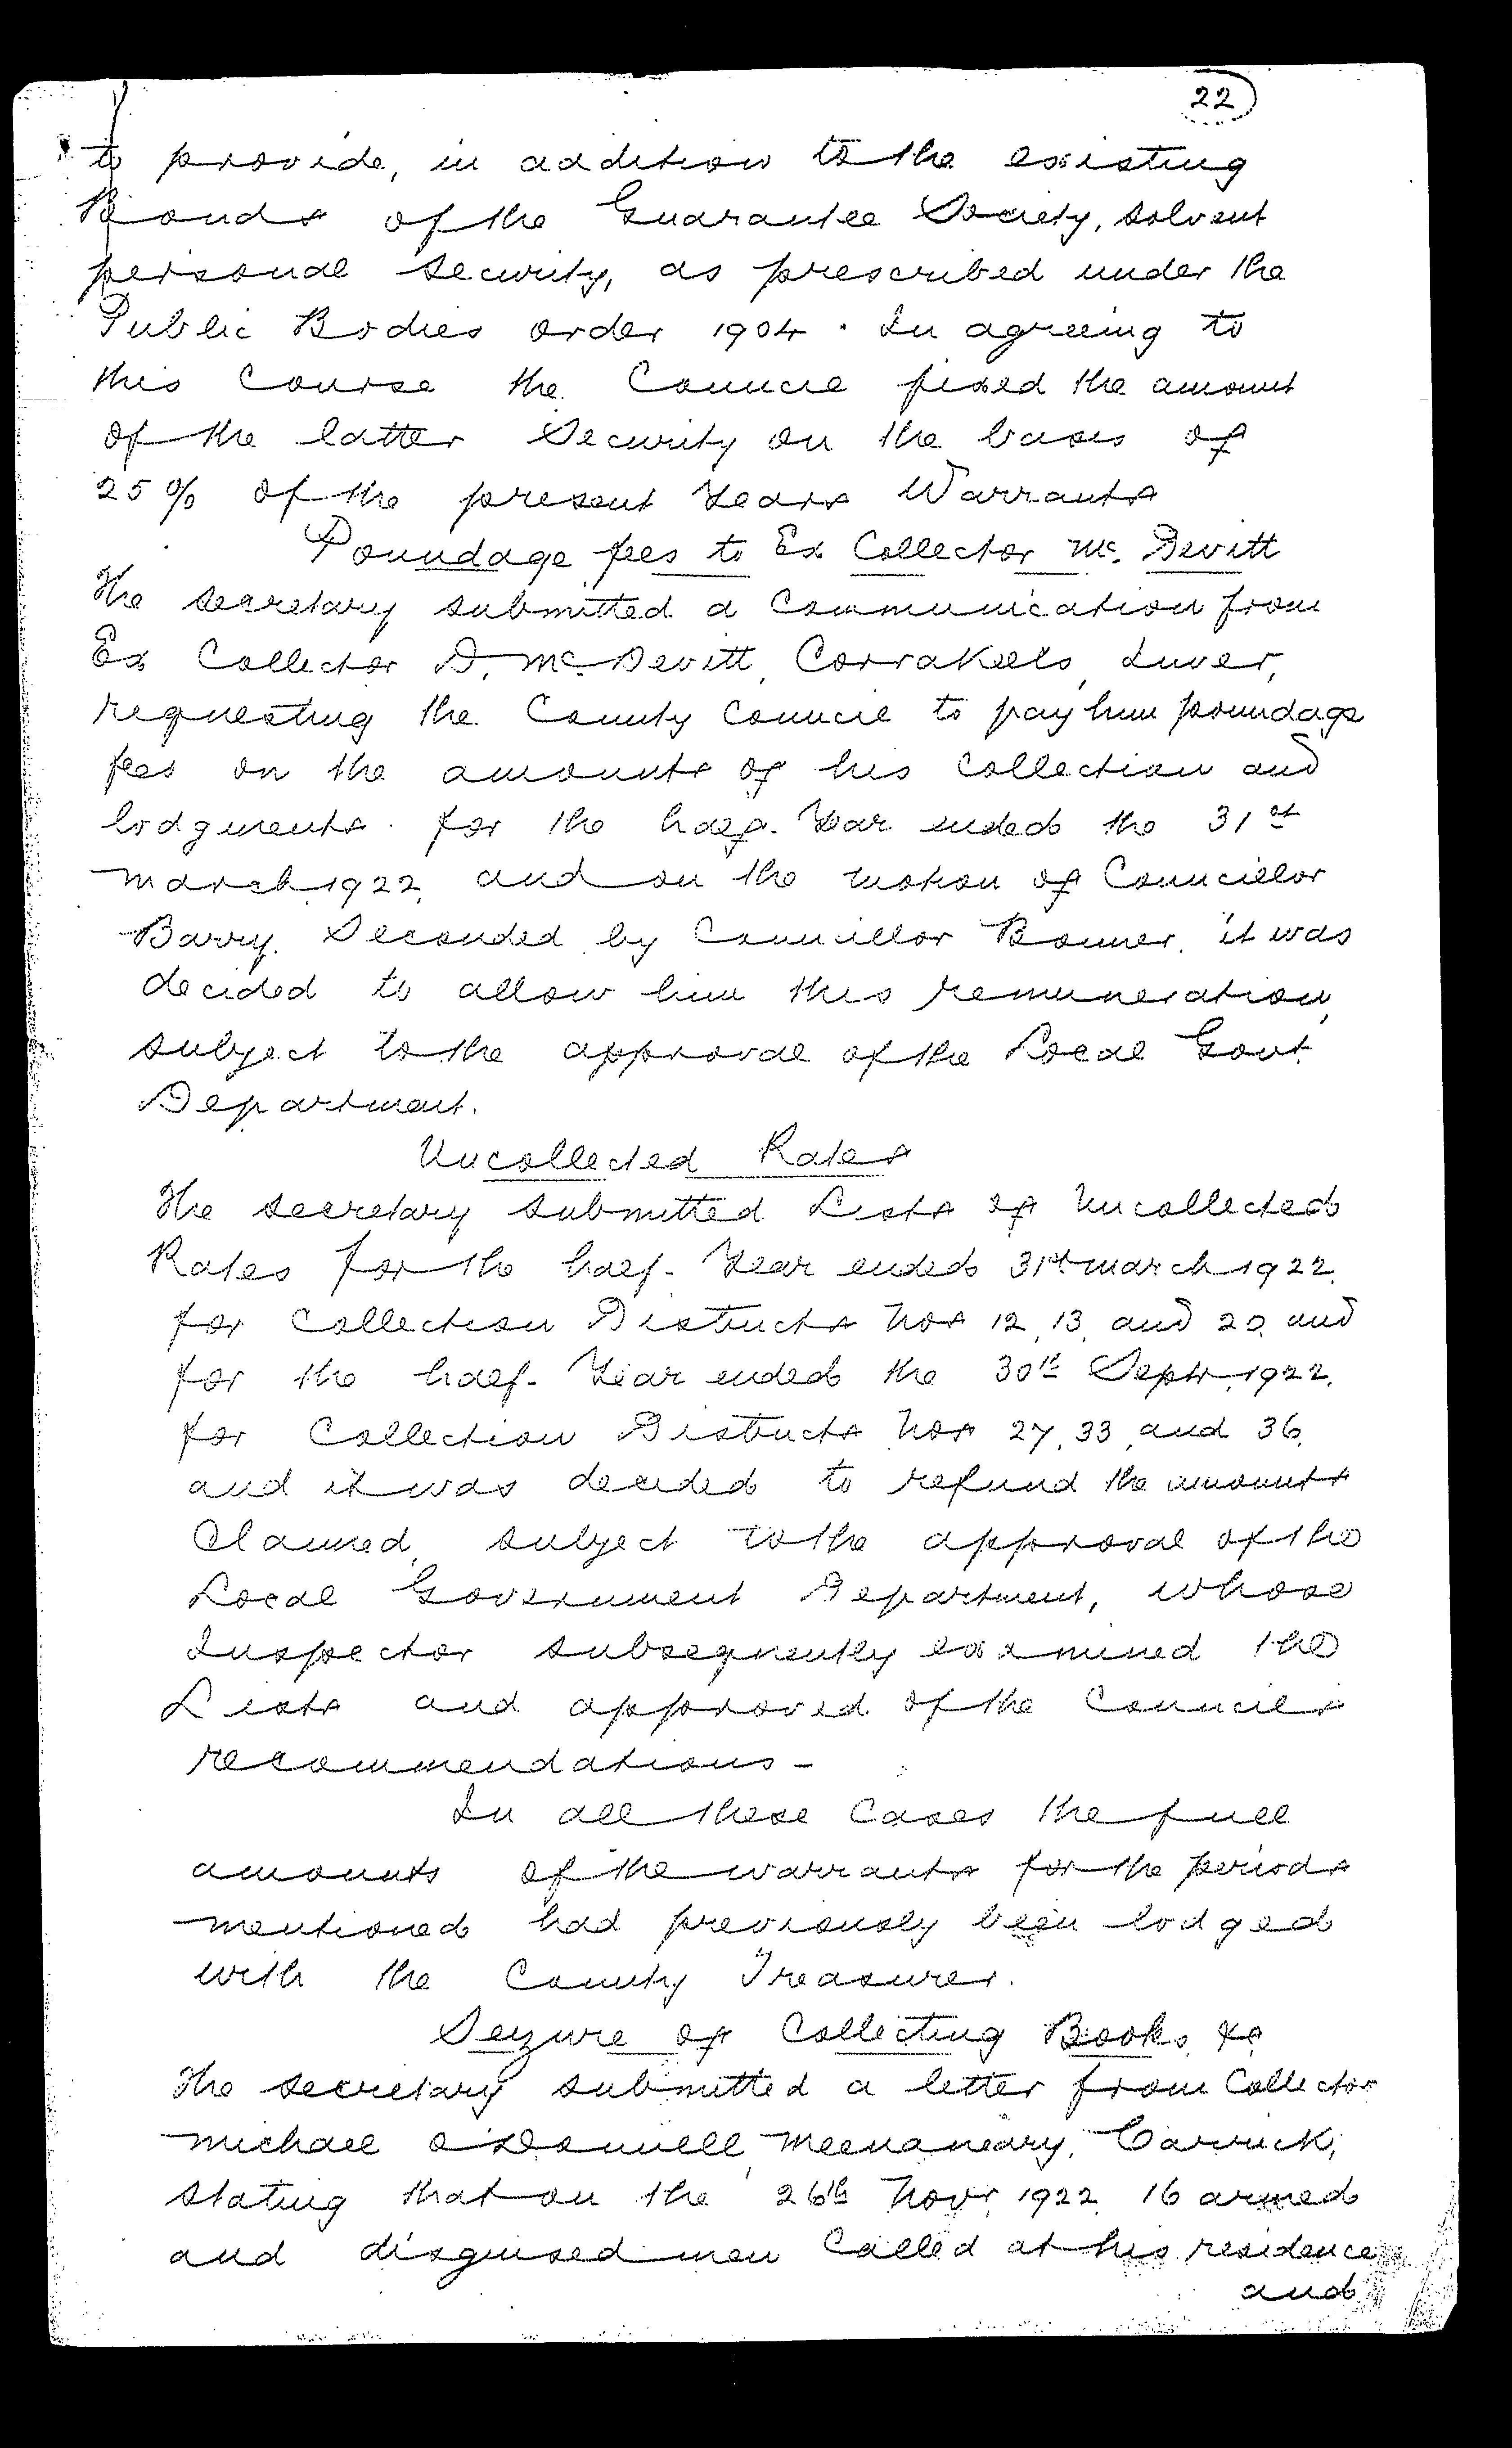 22
to provide, in addition to the existing
Bonds of the Guarantee Society, solvent
personal security, as prescribed under the
Public Bodies order 1904. In agreeing to
this Course the Council fixed the amount
of the latter Security on the basis of
25% of the present Years Warrants
Poundage fees to Ex Collector Mc. Devitt
The secretary submitted a Communication from
Ex Collector D. McDevitt, Corrakeels, Inver,
requesting the County Council to pay him poundage
fees on the amounts of his Collection and
lodgments for the half-Year ended the 31st
March 1922, and on the motion of Councillor
Barry. Seconded by Councillor Bonner, it was
decided to allow him this remuneration,
subject to the approval of the Local Govt
Department.
Uncollected Rates
The secretary submitted Lists of Uncollected
Rates for the half-Year ended 31st March 1922.
for Collection Districts Nos 12, 13, and 20, and
for the half-Year ended the 30th Septr. 1922.
for Collection Districts Nos 27, 33, and 36,
and it was decided to refund the amounts
Claimed, subject to the approval of the
Local Government Department, whose
Inspector subsequently examined the
Lists and approved of the Councils
recommendations -
In all these Cases the full
amounts of the warrants for the periods
mentioned had previously been lodged
with the County Treasurer.
Seizure of Collecting Books &c
The secretary submitted a letter from Collector
Michael O'Donnell, Meenaneary, Carrick,
stating that on the 26th Novr 1922 16 armed
and disguised men Called at his residence
and